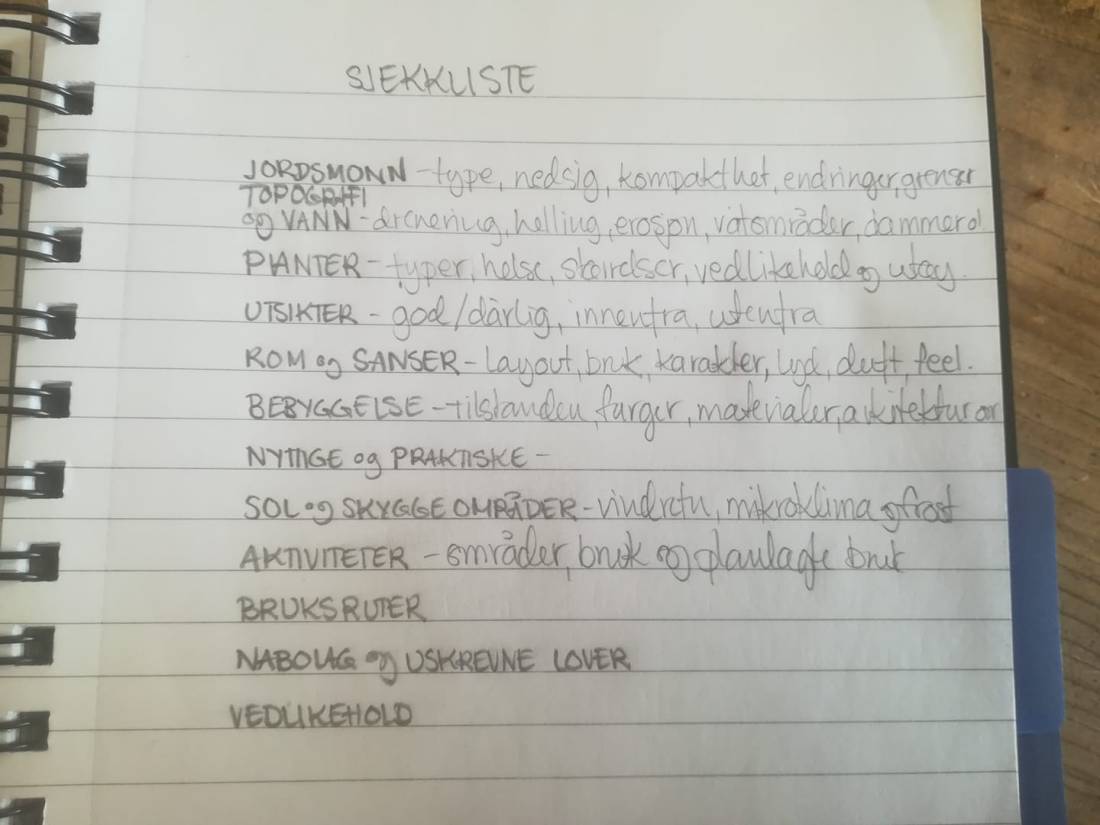 SJEKKLISTE
JORDSMONN - type, nedsig, kompakthet, endringer, grenser
TOPOGRAFI
og VANN - drenering, helling, erosjon, våtområder, dammer o
PLANTER - typer, helse, størrelser, vedlikehold og
UTSIKTER - god/dårlig, innenfra, utenfra
ROM og SANSER - Layout, bruk, karakter, lyd, duft, feel.
BEBYGGELSE - tilstanden, farger, materialer, arkitektur
NYTTIGE og PRAKTISKE -
SOL og SKYGGEOMRÅDER - vindretn, mikroklima og frost
AKTIVITETER - områder, bruk og planlagte bruk
BRUKSRUTER
NABOLAG og USKREVNE LOVER
VEDLIKEHOLD